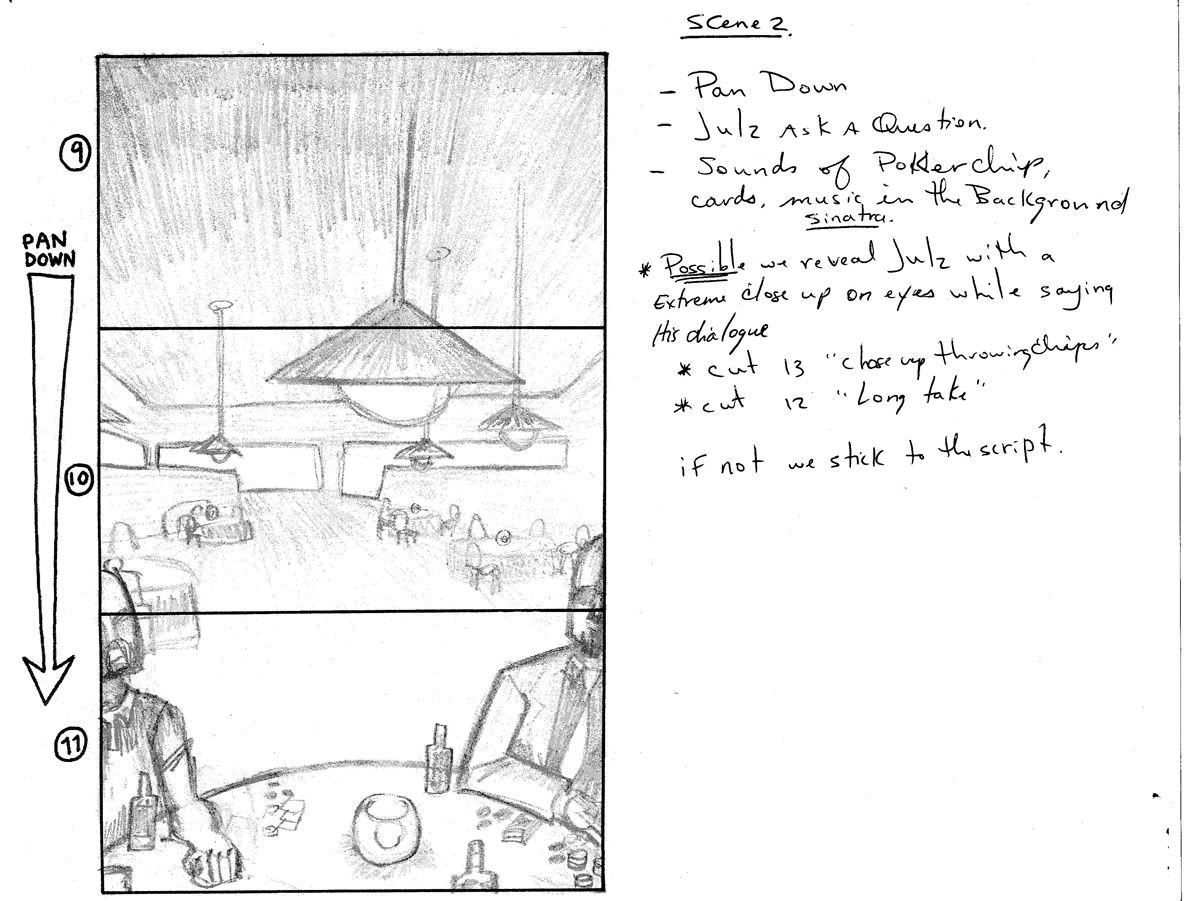 Scene 2.
- Pan Down
- Julz Ask A Question.
- Sounds of Pokker chip,
cards, music in the Background
sinatra.
* Possible we reveal Julz with a
Extreme close up on eyes while saying
His dialogue
* cut 13 "close up throwing chips"
* cut 12 "Long take"
if not we stick to the script.
9
PAN
DOWN
10
11